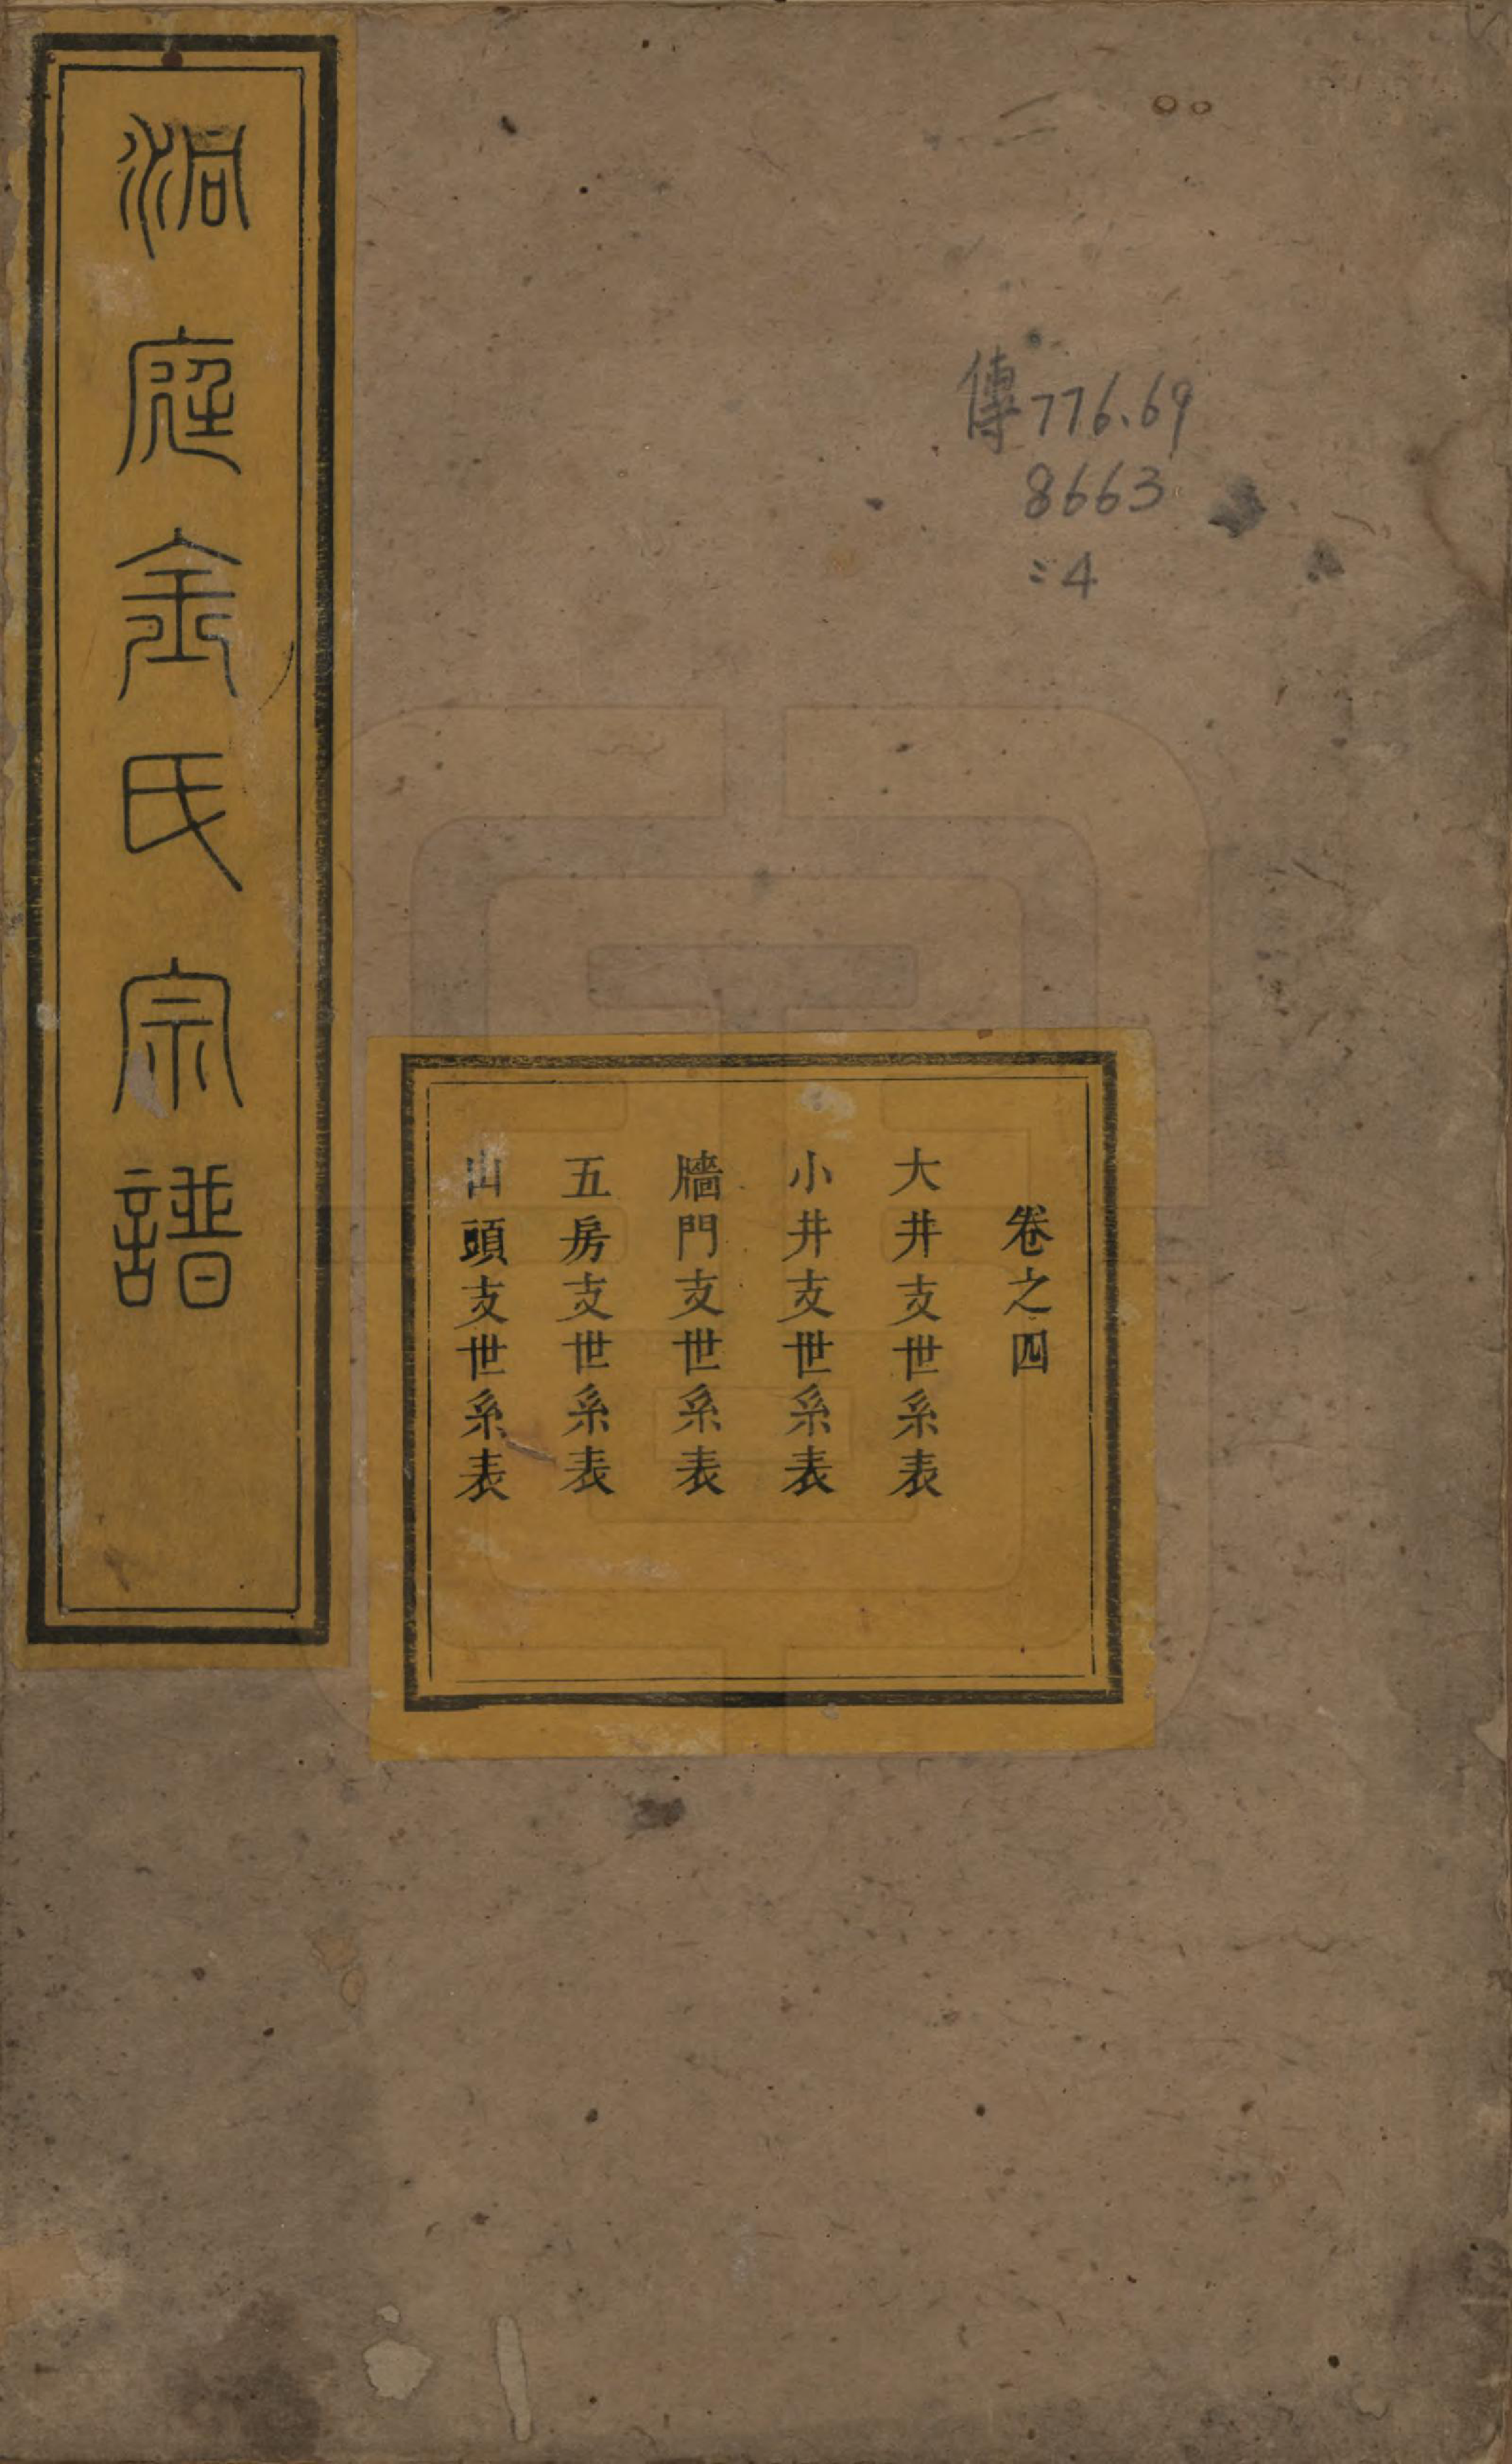 洞庭金氏宗譜
傳776.69
8663
:4
卷之四
大井支世系表
小井支世系表
牆門支世系表
五房支世系表
山頭支世系表